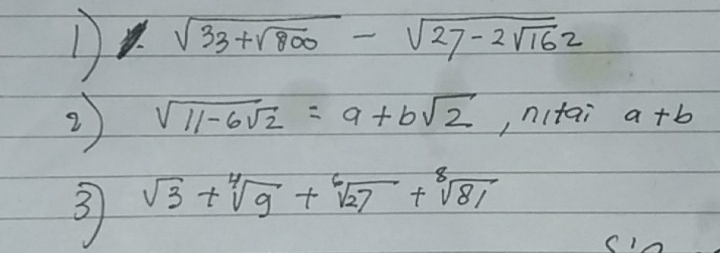 1) √33+√800 - √27-2√162
2) √11-6√2 = a+b√2, nilai a+b
3) √3 + ⁴√9 + ⁶√27 + ⁸√81